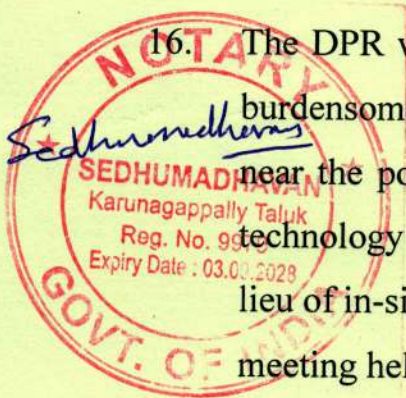 16. The DPR
burdensom
near the po
technology
lieu of in-si
meeting hel
NOTARY
Sedhumadhavan
SEDHUMADHAVAN
Karunagappally Taluk
Reg. No.
Expiry Date : 03.09.2028
GOVT. OF INDIA